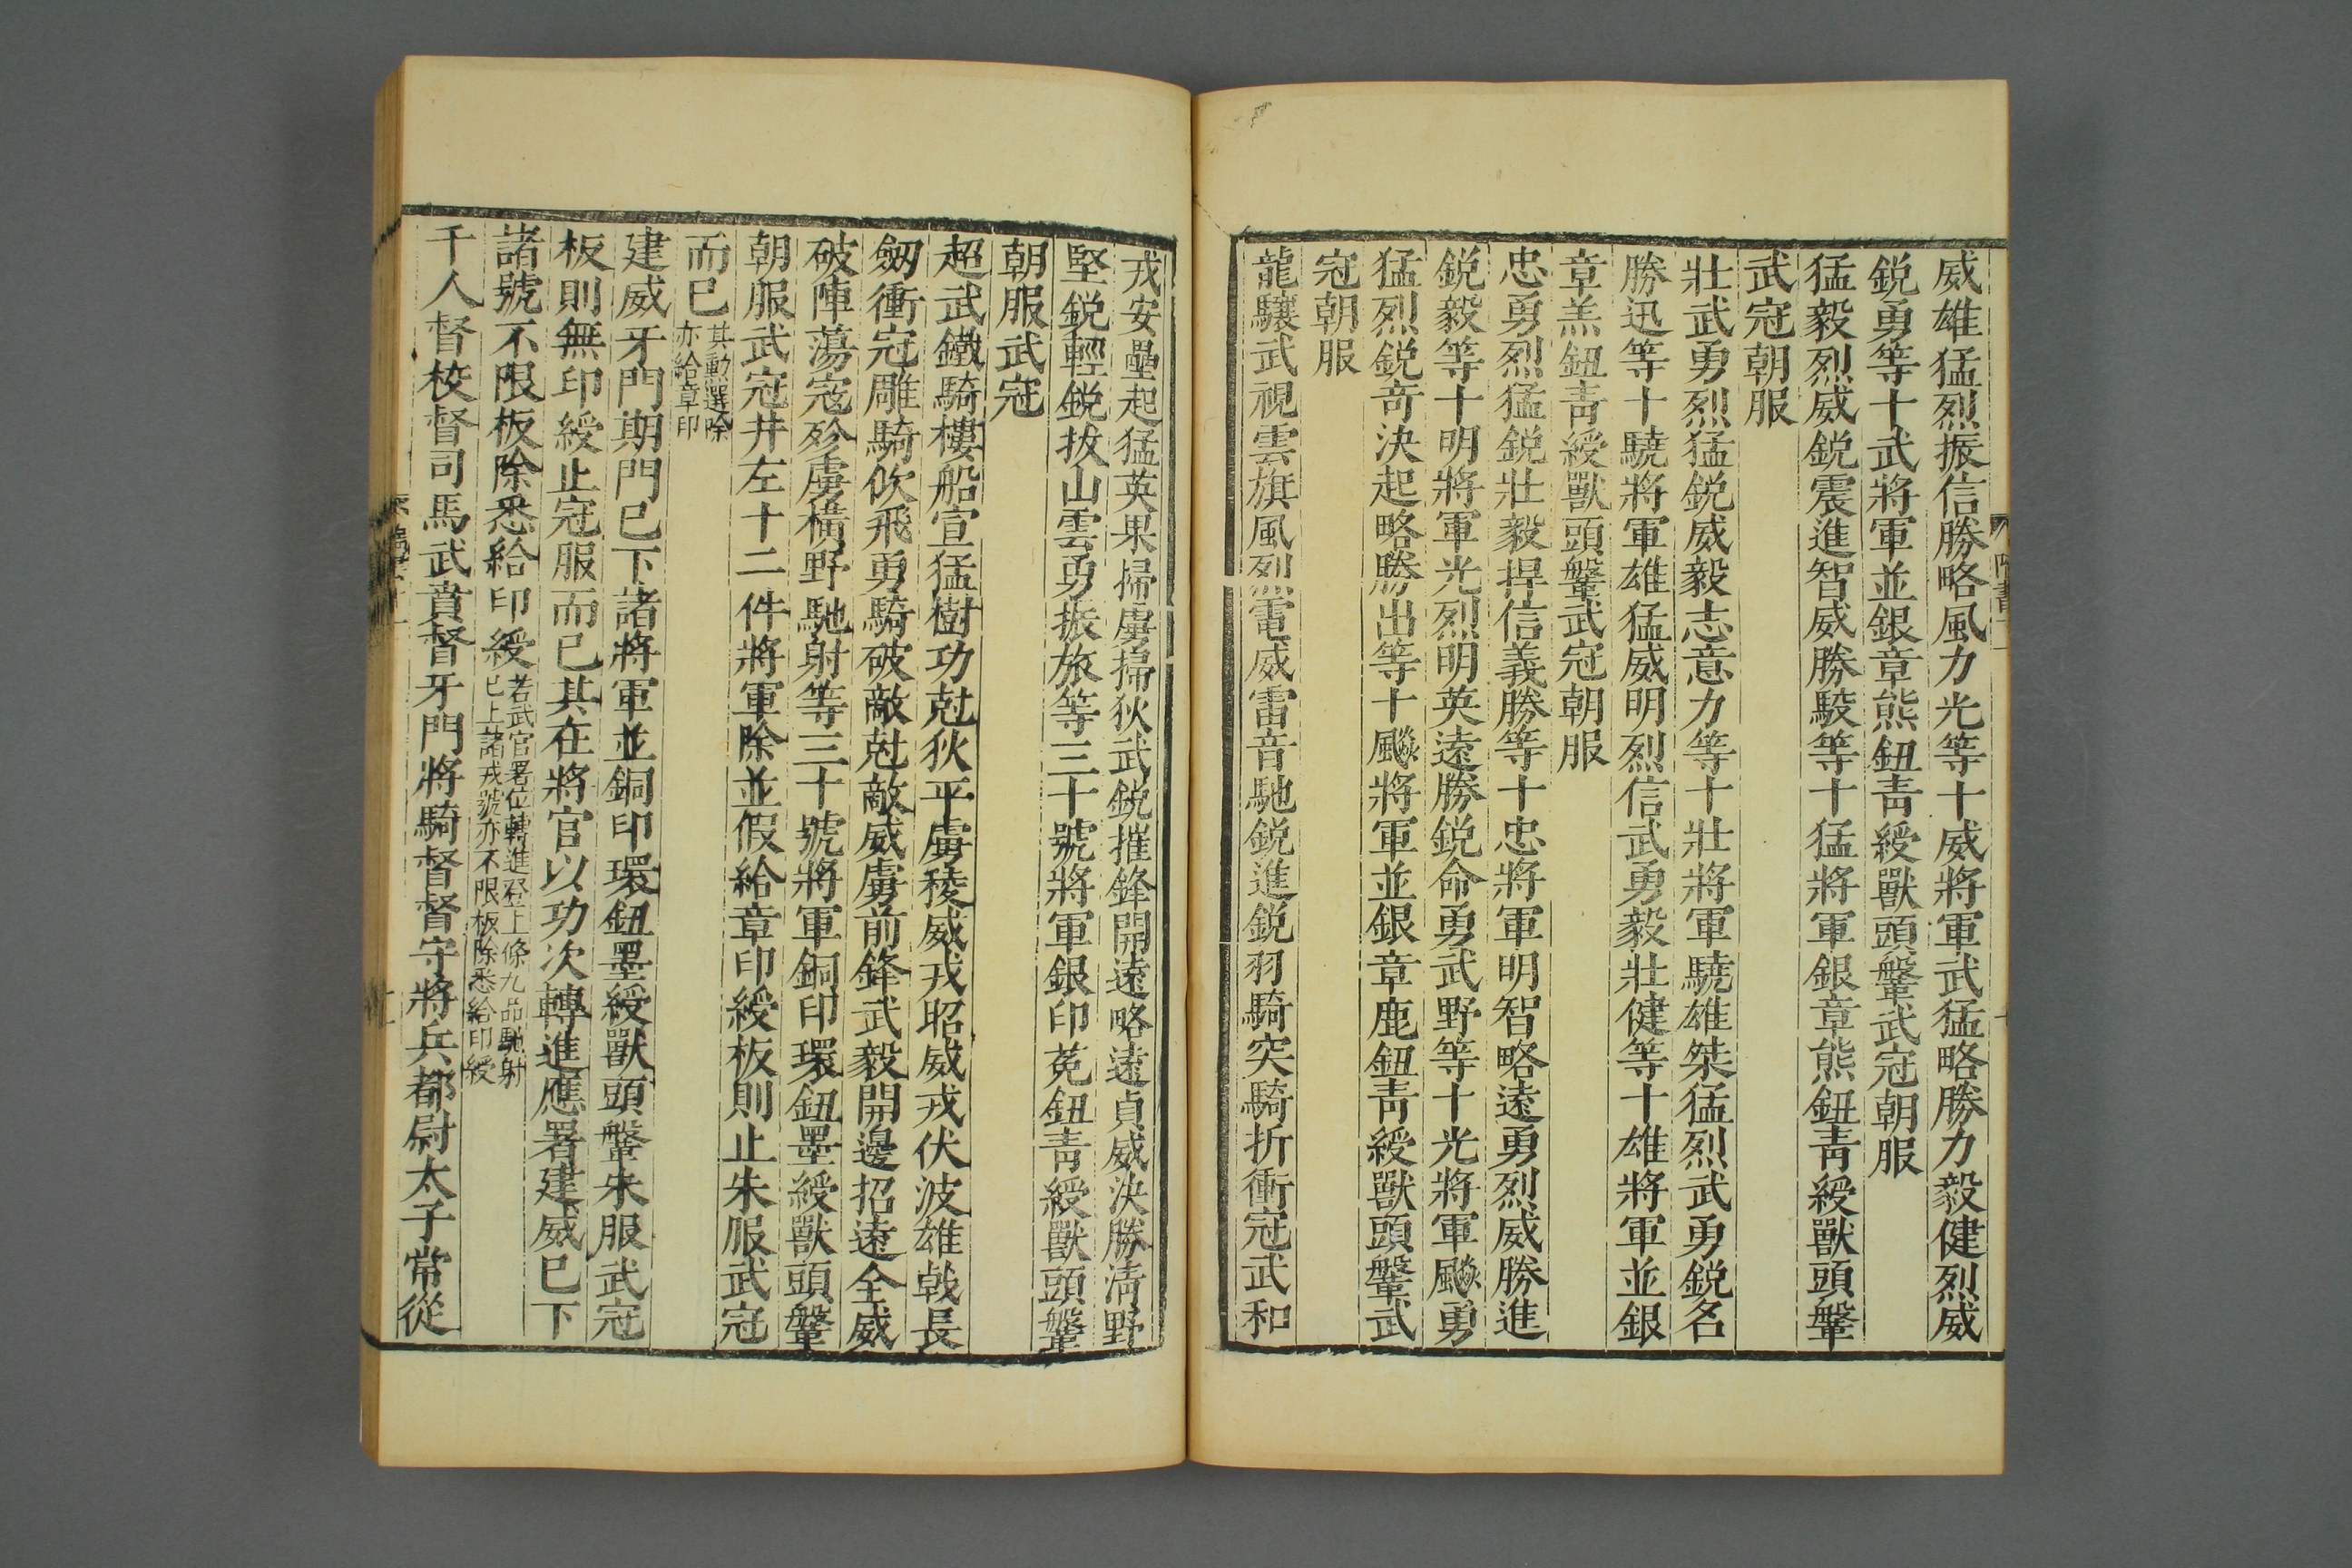 威雄猛烈振信勝略風力光等十威將軍武猛略勝力毅健烈威
鋭勇等十武將軍並銀章熊鈕青綬獸頭鞶武冠朝服
猛毅烈威鋭震進智威勝駿等十猛將軍銀章熊鈕青綬獸頭鞶
武冠朝服
壯武勇烈猛鋭威毅志意力等十壯將軍驍雄桀猛烈武勇鋭名
勝迅等十驍將軍雄猛威明烈信武勇毅壯健等十雄將軍並銀
章羔鈕青綬獸頭鞶武冠朝服
忠勇烈猛鋭壯毅捍信義勝等十忠將軍明智略遠勇烈威勝進
鋭毅等十明將軍光烈明英遠勝鋭命勇武野等十光將軍飈勇
猛烈鋭奇決起略勝出等十飈將軍並銀章鹿鈕青綬獸頭鞶武
冠朝服
龍驤武視雲旗風烈電威雷音馳鋭進鋭羽騎突騎折衝冠武和
戎安壘起猛英果掃虜掃狄武鋭摧鋒開遠略遠貞威決勝清野
堅鋭輕鋭拔山雲勇振旅等三十號將軍銀印菟鈕青綬獸頭鞶
朝服武冠
超武鐵騎樓船宣猛樹功尅狄平虜稜威戎昭威戎伏波雄戟長
劒衝冠雕騎佽飛勇騎破敵尅敵威虜前鋒武毅開邊招遠全威
破陣蕩寇殄虜橫野馳射等三十號將軍銅印環鈕墨綬獸頭鞶
朝服武冠并左十二件將軍除並假給章印綬板則止朱服武冠
而已其勳選除
亦給章印
建威牙門期門已下諸將軍並銅印環鈕墨綬獸頭鞶朱服武冠
板則無印綬止冠服而已其在將官以功次轉進應署建威已下
諸號不限板除悉給印綬若武官署位轉進登上條九品馳射
已上諸戎號亦不限板除悉給印綬
千人督校督司馬武賁督牙門將騎督督守將兵都尉太子常從